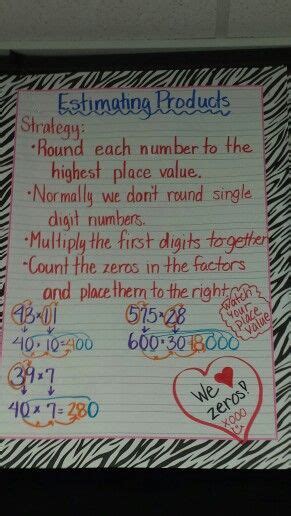 Estimating Products
Strategy:
•Round each number to the
highest place value.
•Normally we don't round single
digit numbers.
•Multiply the first digits together
•Count the zeros in the factors
and place them to the right.
43×11
40·10=400
575×28
600·30 18000
Watch
Your
Place
Value
39×7
40×7=280
We
zeros!
xooo